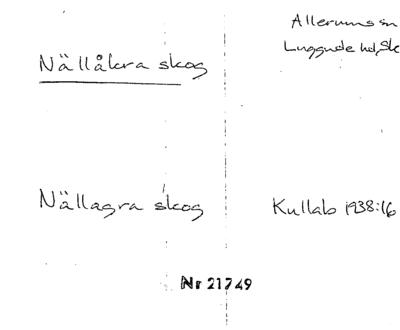 Allerums sn
Luggude hd, Sk
Nällåkra skog
Nällagra skog
Kullab 1938:16
Nr 21749